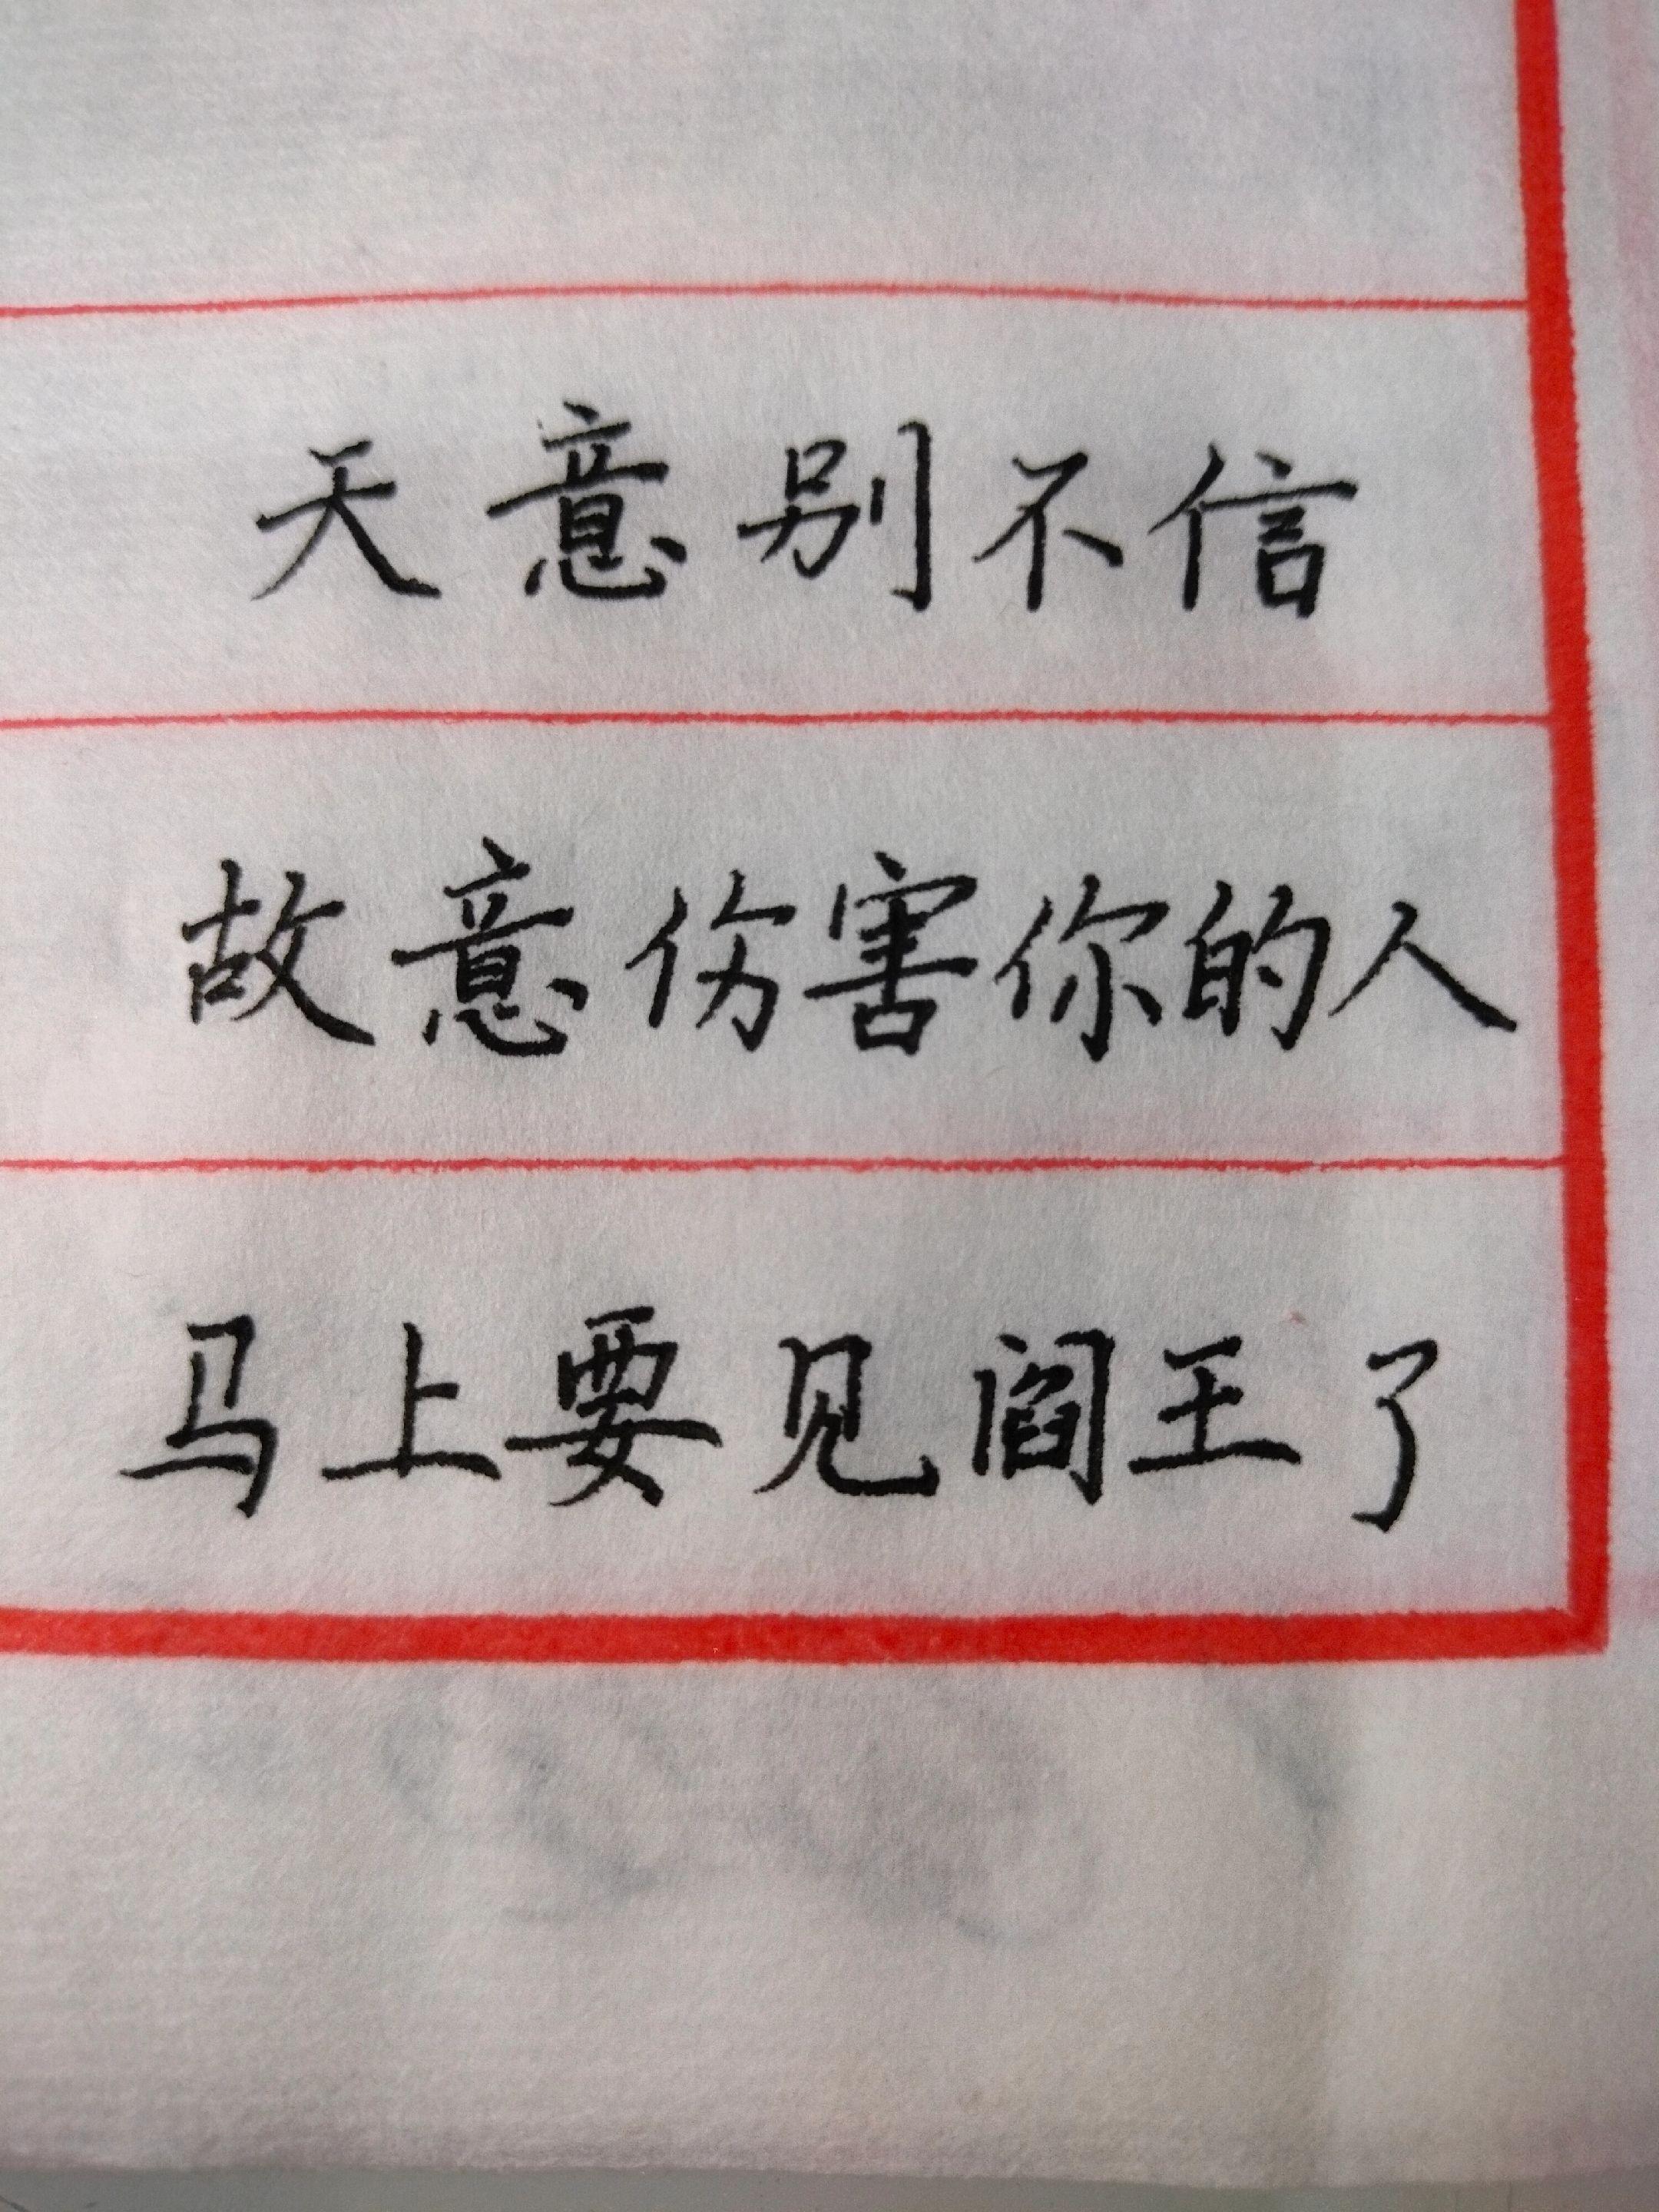 天意别不信
故意伤害你的人
马上要见阎王了